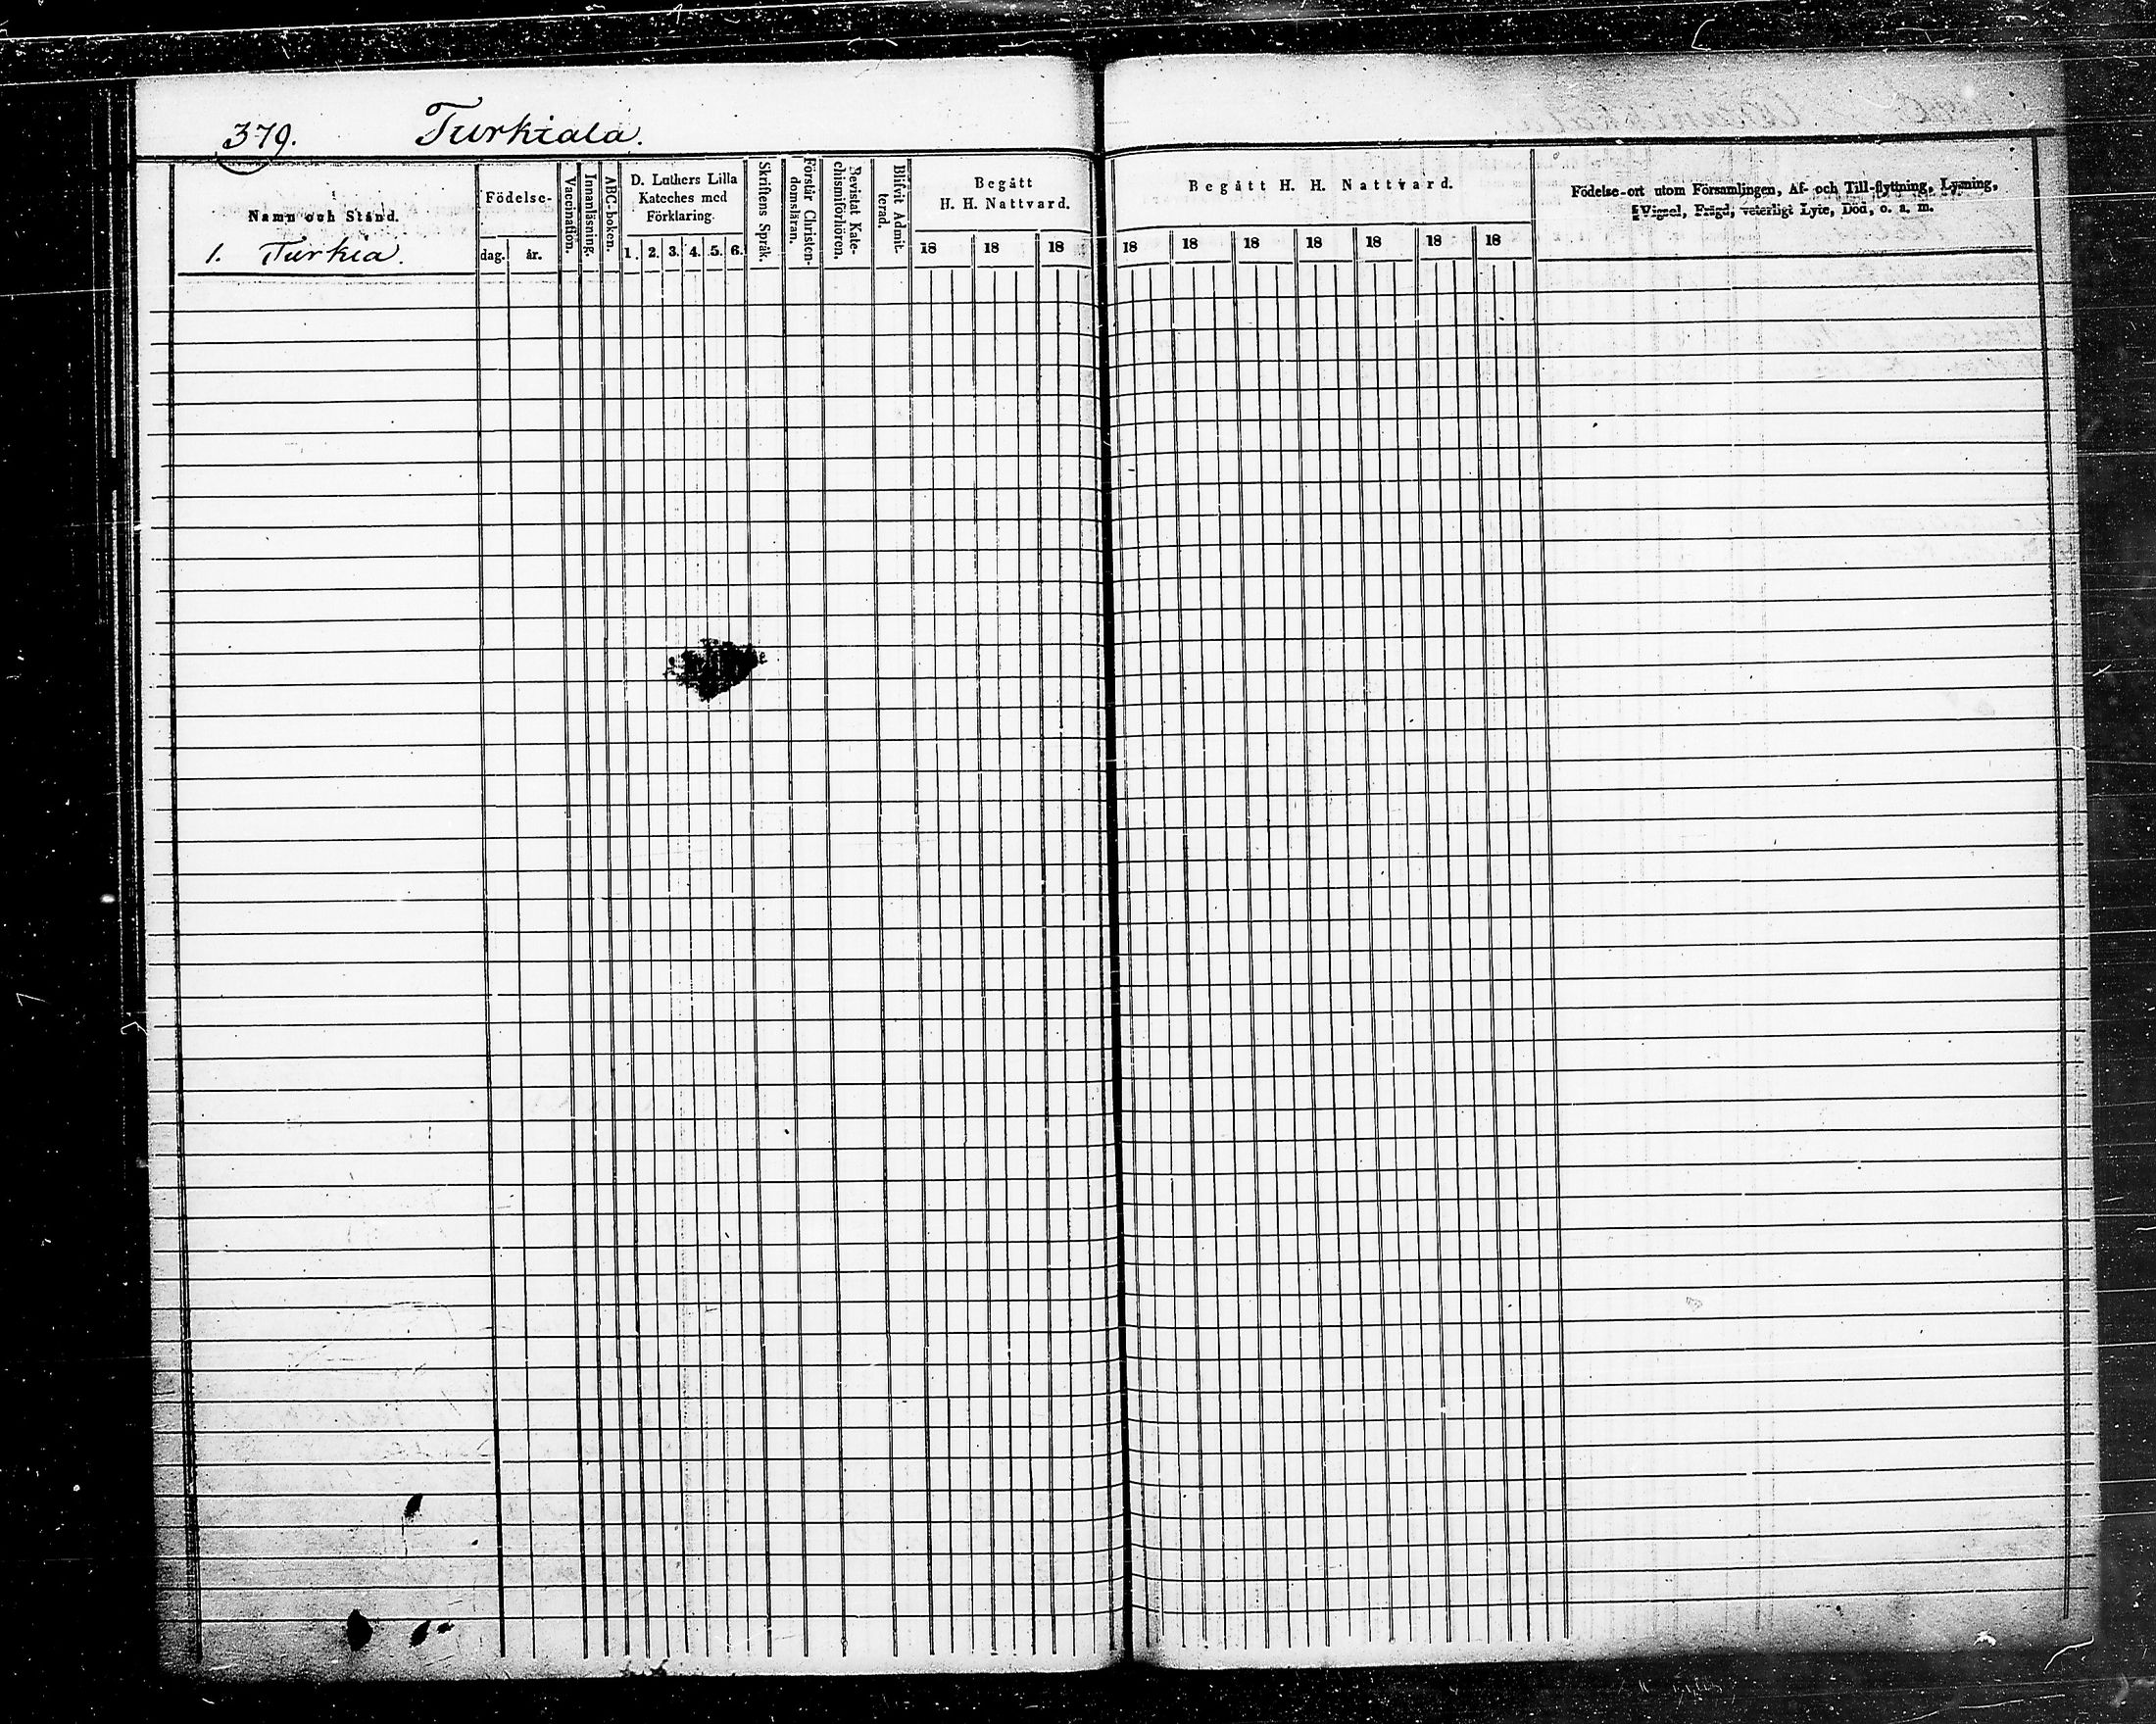 379. Turkiala.
Namn och Stånd.
1. Turkia.
Födelse-
dag. år.
Vaccination.
Innanläsning.
ABC-boken.
D. Luthers Lilla
Kateches med
Förklaring.
1. 2. 3. 4. 5. 6.
Skriftens Språk.
Förstår Christen-
domsläran.
Bevistat Kate-
chismiförhören.
Blifvit Admit-
terad.
Begått
H. H. Nattvard.
18 18 18
Begått H. H. Nattvard.
18 18 18 18 18 18 18
Födelse-ort utom Församlingen, Af- och Till-flyttning, Lysning,
Vigsel, Frägd, veterligt Lyte, Död, o. s. m.